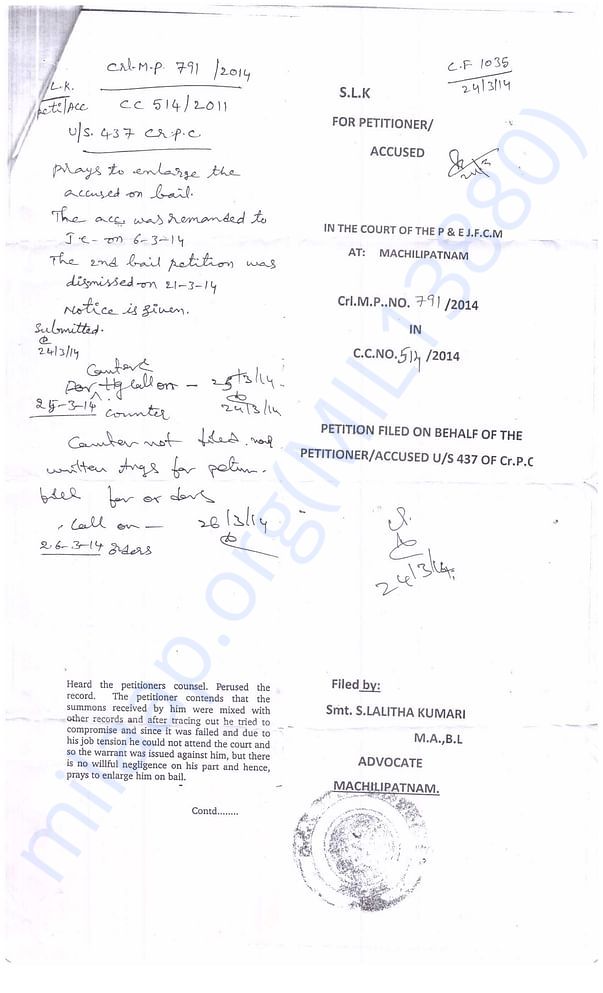 Crl.M.P. 791 /2014
L.K.
Peti/Acc CC 514/2011
U/S. 437 Cr.P.C
Prays to enlarge the
accused on bail.
The acc. was remanded to
J.C- on 6-3-14
The 2nd bail petition was
dismissed on 21-3-14
Notice is given.
Submitted.
24/3/14
Counter
For Hg call on - 25/3/14
24/3/14
25-3-14 counter
Counter not filed.
written Args for
for orders
call on - 26/3/14
26-3-14 orders
Heard the petitioners counsel. Perused the
record. The petitioner contends that the
summons received by him were mixed with
other records and after tracing out he tried to
compromise and since it was failed and due to
his job tension he could not attend the court and
so the warrant was issued against him, but there
is no willful negligence on his part and hence,
prays to enlarge him on bail.
Contd........
C.F 1035
24/3/14
S.L.K
FOR PETITIONER/
ACCUSED
IN THE COURT OF THE P & E J.F.C.M
AT: MACHILIPATNAM
Crl.M.P..NO. 791/2014
IN
C.C.NO.514/2014
PETITION FILED ON BEHALF OF THE
PETITIONER/ACCUSED U/S 437 OF Cr.P.C
24/3/14.
Filed by:
Smt. S.LALITHA KUMARI
M.A.,B.L
ADVOCATE
MACHILIPATNAM.